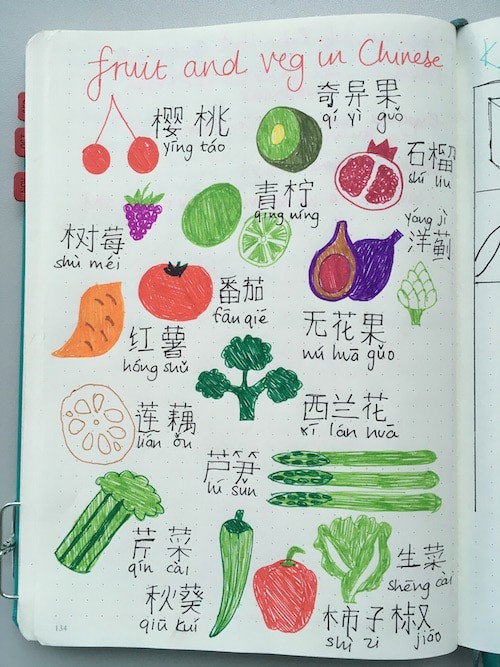 fruit and veg in Chinese
樱桃
yīng táo
奇异果
qí yì guǒ
石榴
shí liu
青柠
qīng níng
树莓
shù méi
yáng jì
洋蓟
番茄
fān qié
红薯
hóng shǔ
无花果
wú huā guǒ
西兰花
xī lán huā
莲藕
lián ǒu
芦笋
lú sǔn
芹菜
qín cài
生菜
shēng cài
秋葵
qiū kuí
柿子椒
shì zi jiāo
134